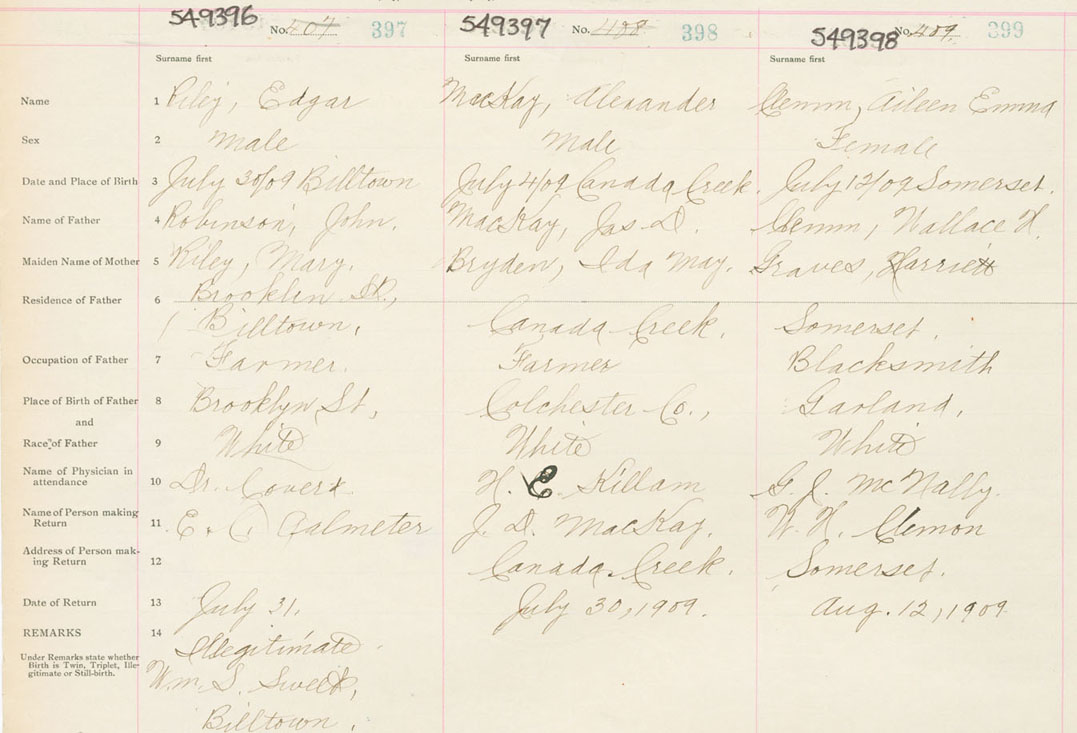 549396 No. 407 397 549397 No. 408 398 549398 No. 409 399
Surname first Surname first Surname first
Name 1 Riley, Edgar MacKay, Alexander Clemm, Aileen Emma
Sex 2 Male Male Female
Date and Place of Birth 3 July 30/09 Billtown July 4/09 Canada Creek. July 12/09 Somerset.
Name of Father 4 Robinson, John. MacKay, Jas. D. Clemm, Wallace H.
Maiden Name of Mother 5 Riley, Mary. Bryden, Ida May. Graves, Harriett
Residence of Father 6 Brooklin St.,
Billtown, Canada Creek. Somerset.
Occupation of Father 7 Farmer. Farmer Blacksmith
Place of Birth of Father 8 Brooklyn St, Colchester Co., Garland,
and
Race of Father 9 White White White
Name of Physician in
attendance 10 Dr. Covert. H. C. Killam G. J. McNally.
Name of Person making
Return 11 E. C. Palmeter J. D. MacKay. W. H. Clemon
Address of Person mak-
ing Return 12 Canada Creek. Somerset.
Date of Return 13 July 31. July 30, 1909. Aug. 12, 1909
REMARKS 14 Illegitimate.
Under Remarks state whether
Birth is Twin, Triplet, Ille-
gitimate or Still-birth.
Wm. S. Sweet,
Billtown.